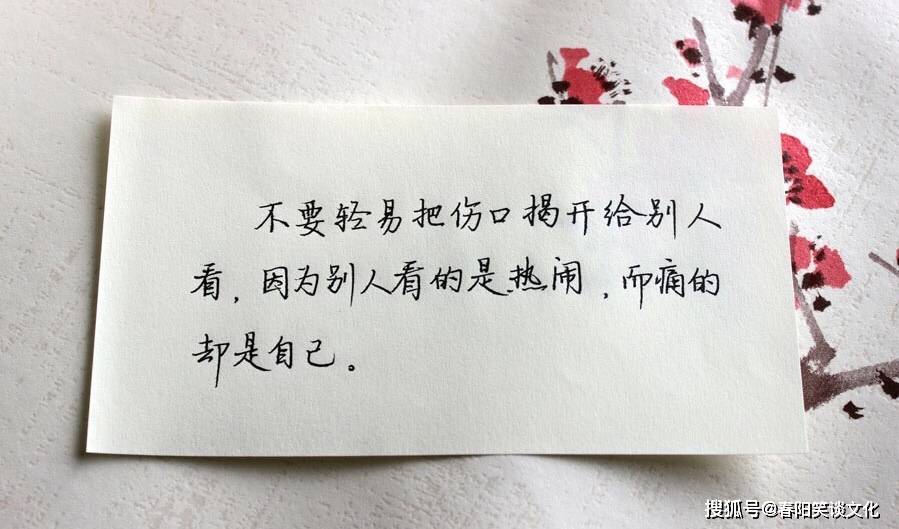 不要轻易把伤口揭开给别人
看，因为别人看的是热闹，而痛的
却是自己。
搜狐号@春阳笑谈文化